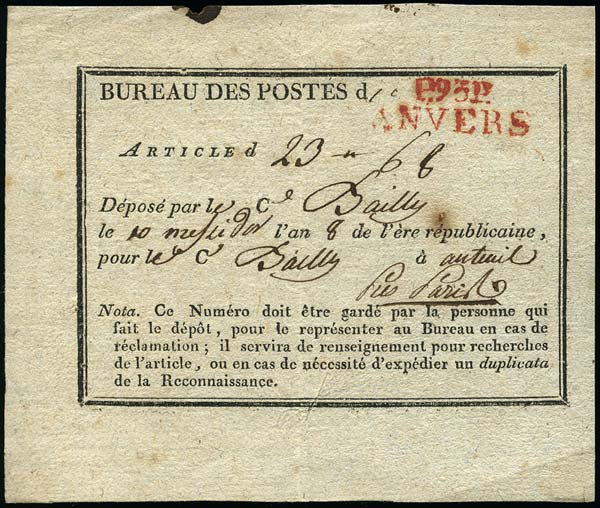 BUREAU DES POSTES d
P.93.P.
ANVERS
ARTICLE d 23 - 68
Déposé par le C Bailly
le 10 messidor l'an 8 de l'ère républicaine,
pour le C Bailly à auteuil
près Paris
Nota. Ce Numéro doit être gardé par la personne qui
fait le dépôt, pour le représenter au Bureau en cas de
réclamation ; il servira de renseignement pour recherches
de l'article, ou en cas de nécessité d'expédier un duplicata
de la Reconnaissance.